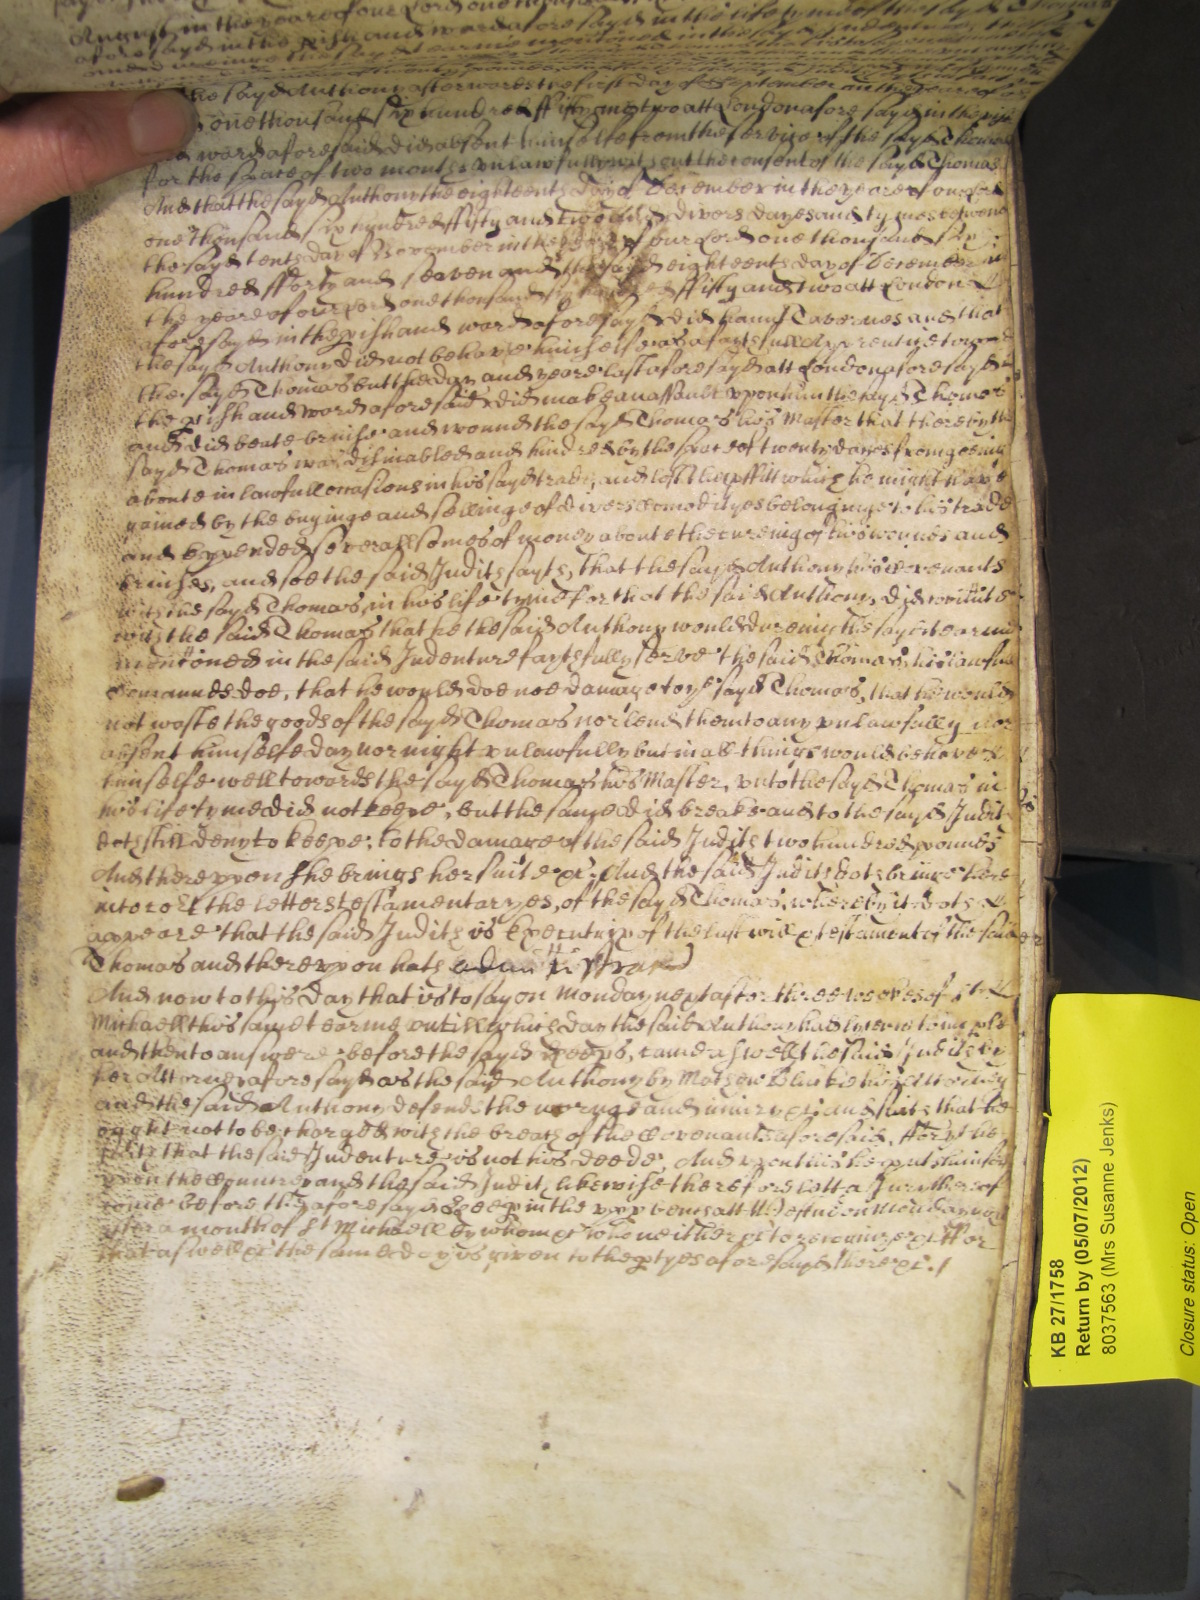 August in the yeare of our Lord one thousand
aforesayd in the pish and ward aforesayd in the life tyme of the sayd Thomas
the sayd Anthony afterwards the first day of September in the yeare of
one thousand six hundred fifty and two att London aforesayd in the pish
ward aforesaid did absent himselfe from the service of the sayd Thomas
for the space of two months unlawfully without the consent of the sayd Thomas
And that the sayd Anthony the eighteenth day of December in the yeare of our Lord
one thousand six hundred fifty and two and divers dayes and tymes betweene
the sayd tenth day of November in the yeare of our Lord one thousand six
hundred fforty and seaven and the said eighteenth day of December in
the yeare of our Lord one thousand six hundred ffifty and two att London
aforesayd in the pish and ward aforesayd did haunt Tavernes and that
the sayd Anthony did not behave himselfe as a faythfull Apprentice toward
the sayd Thomas but the day and yeare last aforesayd att London aforesayd in
the pish and ward aforesaid did make an assault uppon him the sayd Thomas
and did beate bruise and wound the sayd Thomas his Master that thereby the
sayd Thomas was disinabled and hindred by the space of twenty dayes from goeing
aboute in lawfull occasions in his sayd trade, and lost the pffitt which he might have
gained by the buyinge and sellinge of divers Comodityes belonginge to his trade
and expended severall somes of money aboute the cureing of his wounds and
bruises, and soe the said Judith sayth, that the sayd Anthony his Covenants
with the sayd Thomas, in his life tyme for that the said Anthony did
with the said Thomas that he the said Anthony would dureing the sayd tearme
mentioned in the said Indenture faythfully serve the said Thomas, his lawfull
Comaunds doe, that he would doe noe damage to ye sayd Thomas, that he would
not waste the goods of the sayd Thomas nor lend them to any unlawfully nor
absent himselfe day nor night unlawfully but in all things would behave
himselfe well towards the sayd Thomas his Master, unto the sayd Thomas in
his life tyme did not keepe, but the same did breake and to the sayd Judith
doth still deny to keepe: to the damage of the said Judith two hundred pounds
And thereupon she brings her suite &c: And the said Judith doth bringe here
into Court the letters testamentaryes, of the sayd Thomas, whereby it doth
appeare that the said Judith is Executrix of the last will & testament of the said
Thomas and thereupon hath administrac
And now to this day that is to say on Monday next after three weekes of St
Michaell this same tearme untill which day the said Anthony had lycence to imple
and then to answere: before the sayd Keeps, came aswell the said Judith by
her Attorney aforesayd as the said Anthony by Mathew his Attorney
and the said Anthony defends the wronge and iniury &c: and saith that he
ought not to be charged with the breach of the Covenants aforesaid, ffor he
saith that the said Indenture is not his deede, And upon this he puts himselfe
upon the Countrey and the said Judith likewise therefore lett a Jury thereof
come before the aforesayd Keeps in the upp bench att Westm on Monday next
after a month of St Michaell by whom &c who neither &c to recognize &c ffor
that aswell &c the same day is given to the ptyes aforesayd there &c./
KB 27/1758
Return by (05/07/2012)
8037563 (Mrs Susanne Jenks)
Closure status: Open